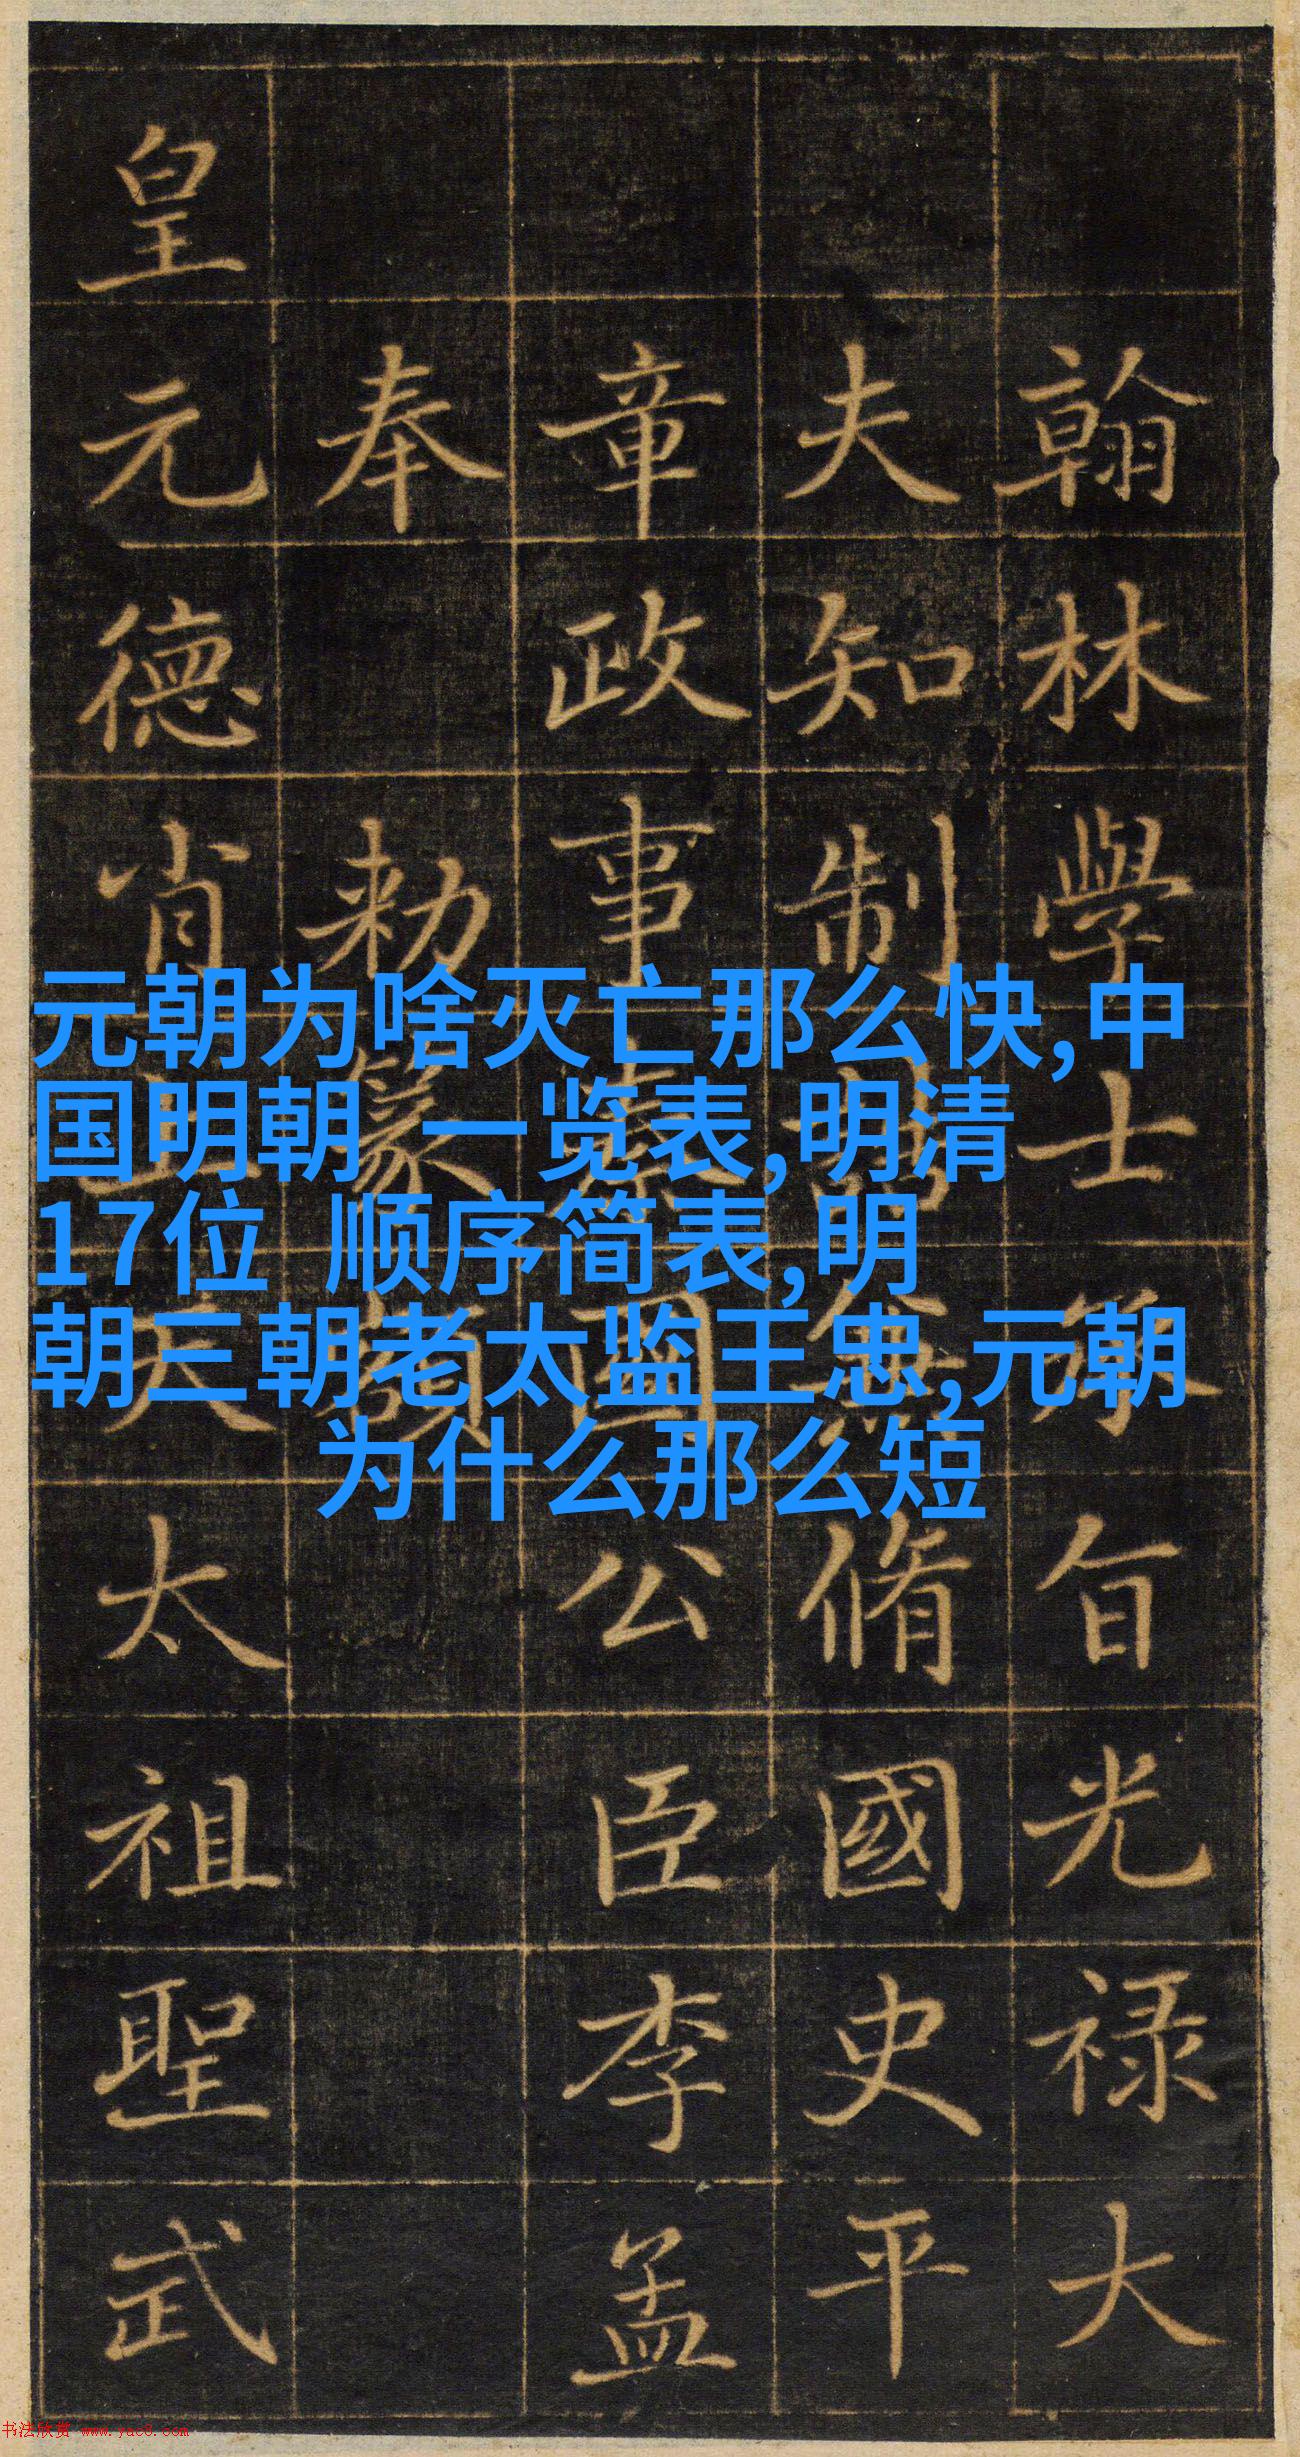 元朝为啥灭亡那么快,中
国明朝 一览表,明清
17位 顺序简表,明
朝三朝老太监王忠,元朝
为什么那么短
翰林學士承旨光祿大
夫知制誥兼脩國史平
章政事秦國公臣李孟
奉 勅篆額
皇元德肖上天太祖聖武
书法欣赏 www.yac8.com